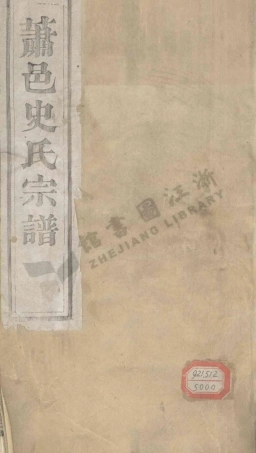 蕭邑史氏宗譜
浙江圖書館
ZHEJIANG LIBRARY
921512
5000